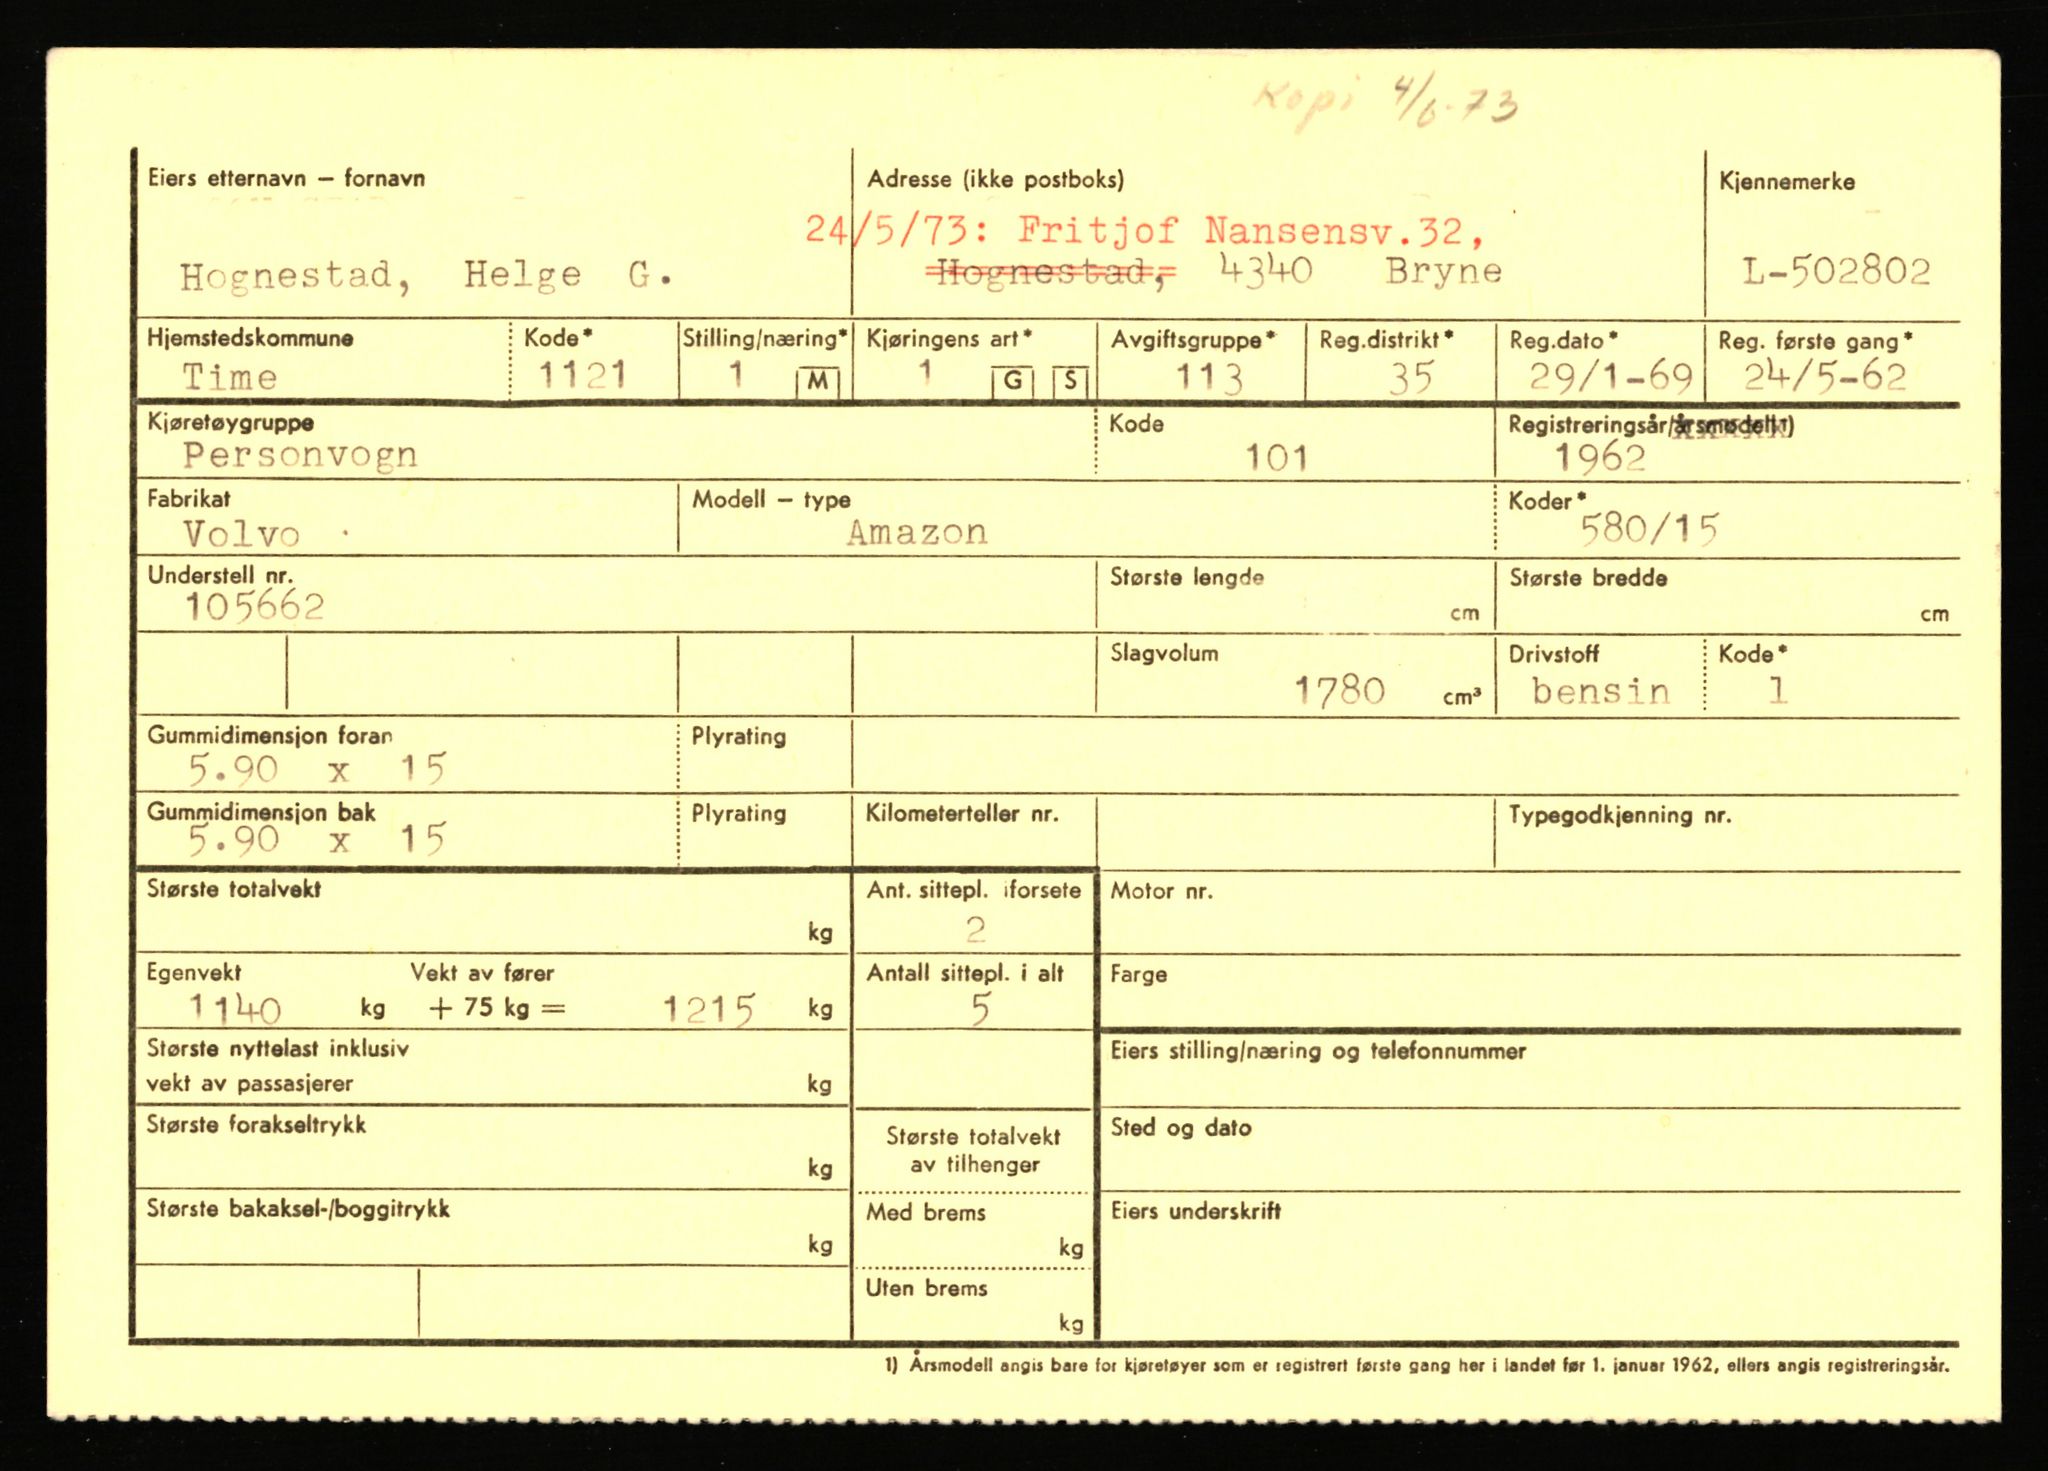 Kopi 4/6-73
Eiers etternavn – fornavn
Adresse (ikke postboks)
Kjennemerke
24/5/73: Fritjof Nansensv.32,
Hognestad, Helge G.
Hognestad, 4340 Bryne
L-502802
Hjemstedskommune
Kode*
Stilling/næring*
Kjøringens art*
Avgiftsgruppe*
Reg.distrikt*
Reg.dato*
Reg. første gang*
Time
1121
1 M
1 G S
113
35
29/1-69
24/5-62
Kjøretøygruppe
Kode
Registreringsår/årsmodell1)
Personvogn
101
1962
Fabrikat
Modell – type
Koder*
Volvo
Amazon
580/15
Understell nr.
Største lengde
Største bredde
105662
cm
cm
Slagvolum
Drivstoff
Kode*
1780 cm³
bensin
1
Gummidimensjon foran
Plyrating
5.90 x 15
Gummidimensjon bak
Plyrating
Kilometerteller nr.
Typegodkjenning nr.
5.90 x 15
Største totalvekt
Ant. sittepl. iforsete
Motor nr.
kg
2
Egenvekt
Vekt av fører
Antall sittepl. i alt
Farge
1140 kg + 75 kg = 1215 kg
5
Største nyttelast inklusiv
vekt av passasjerer kg
Eiers stilling/næring og telefonnummer
Største forakseltrykk
kg
Største totalvekt
av tilhenger
Sted og dato
Største bakaksel-/boggitrykk
kg
Med brems
kg
Eiers underskrift
Uten brems
kg
1) Årsmodell angis bare for kjøretøyer som er registrert første gang her i landet før 1. januar 1962, ellers angis registreringsår.